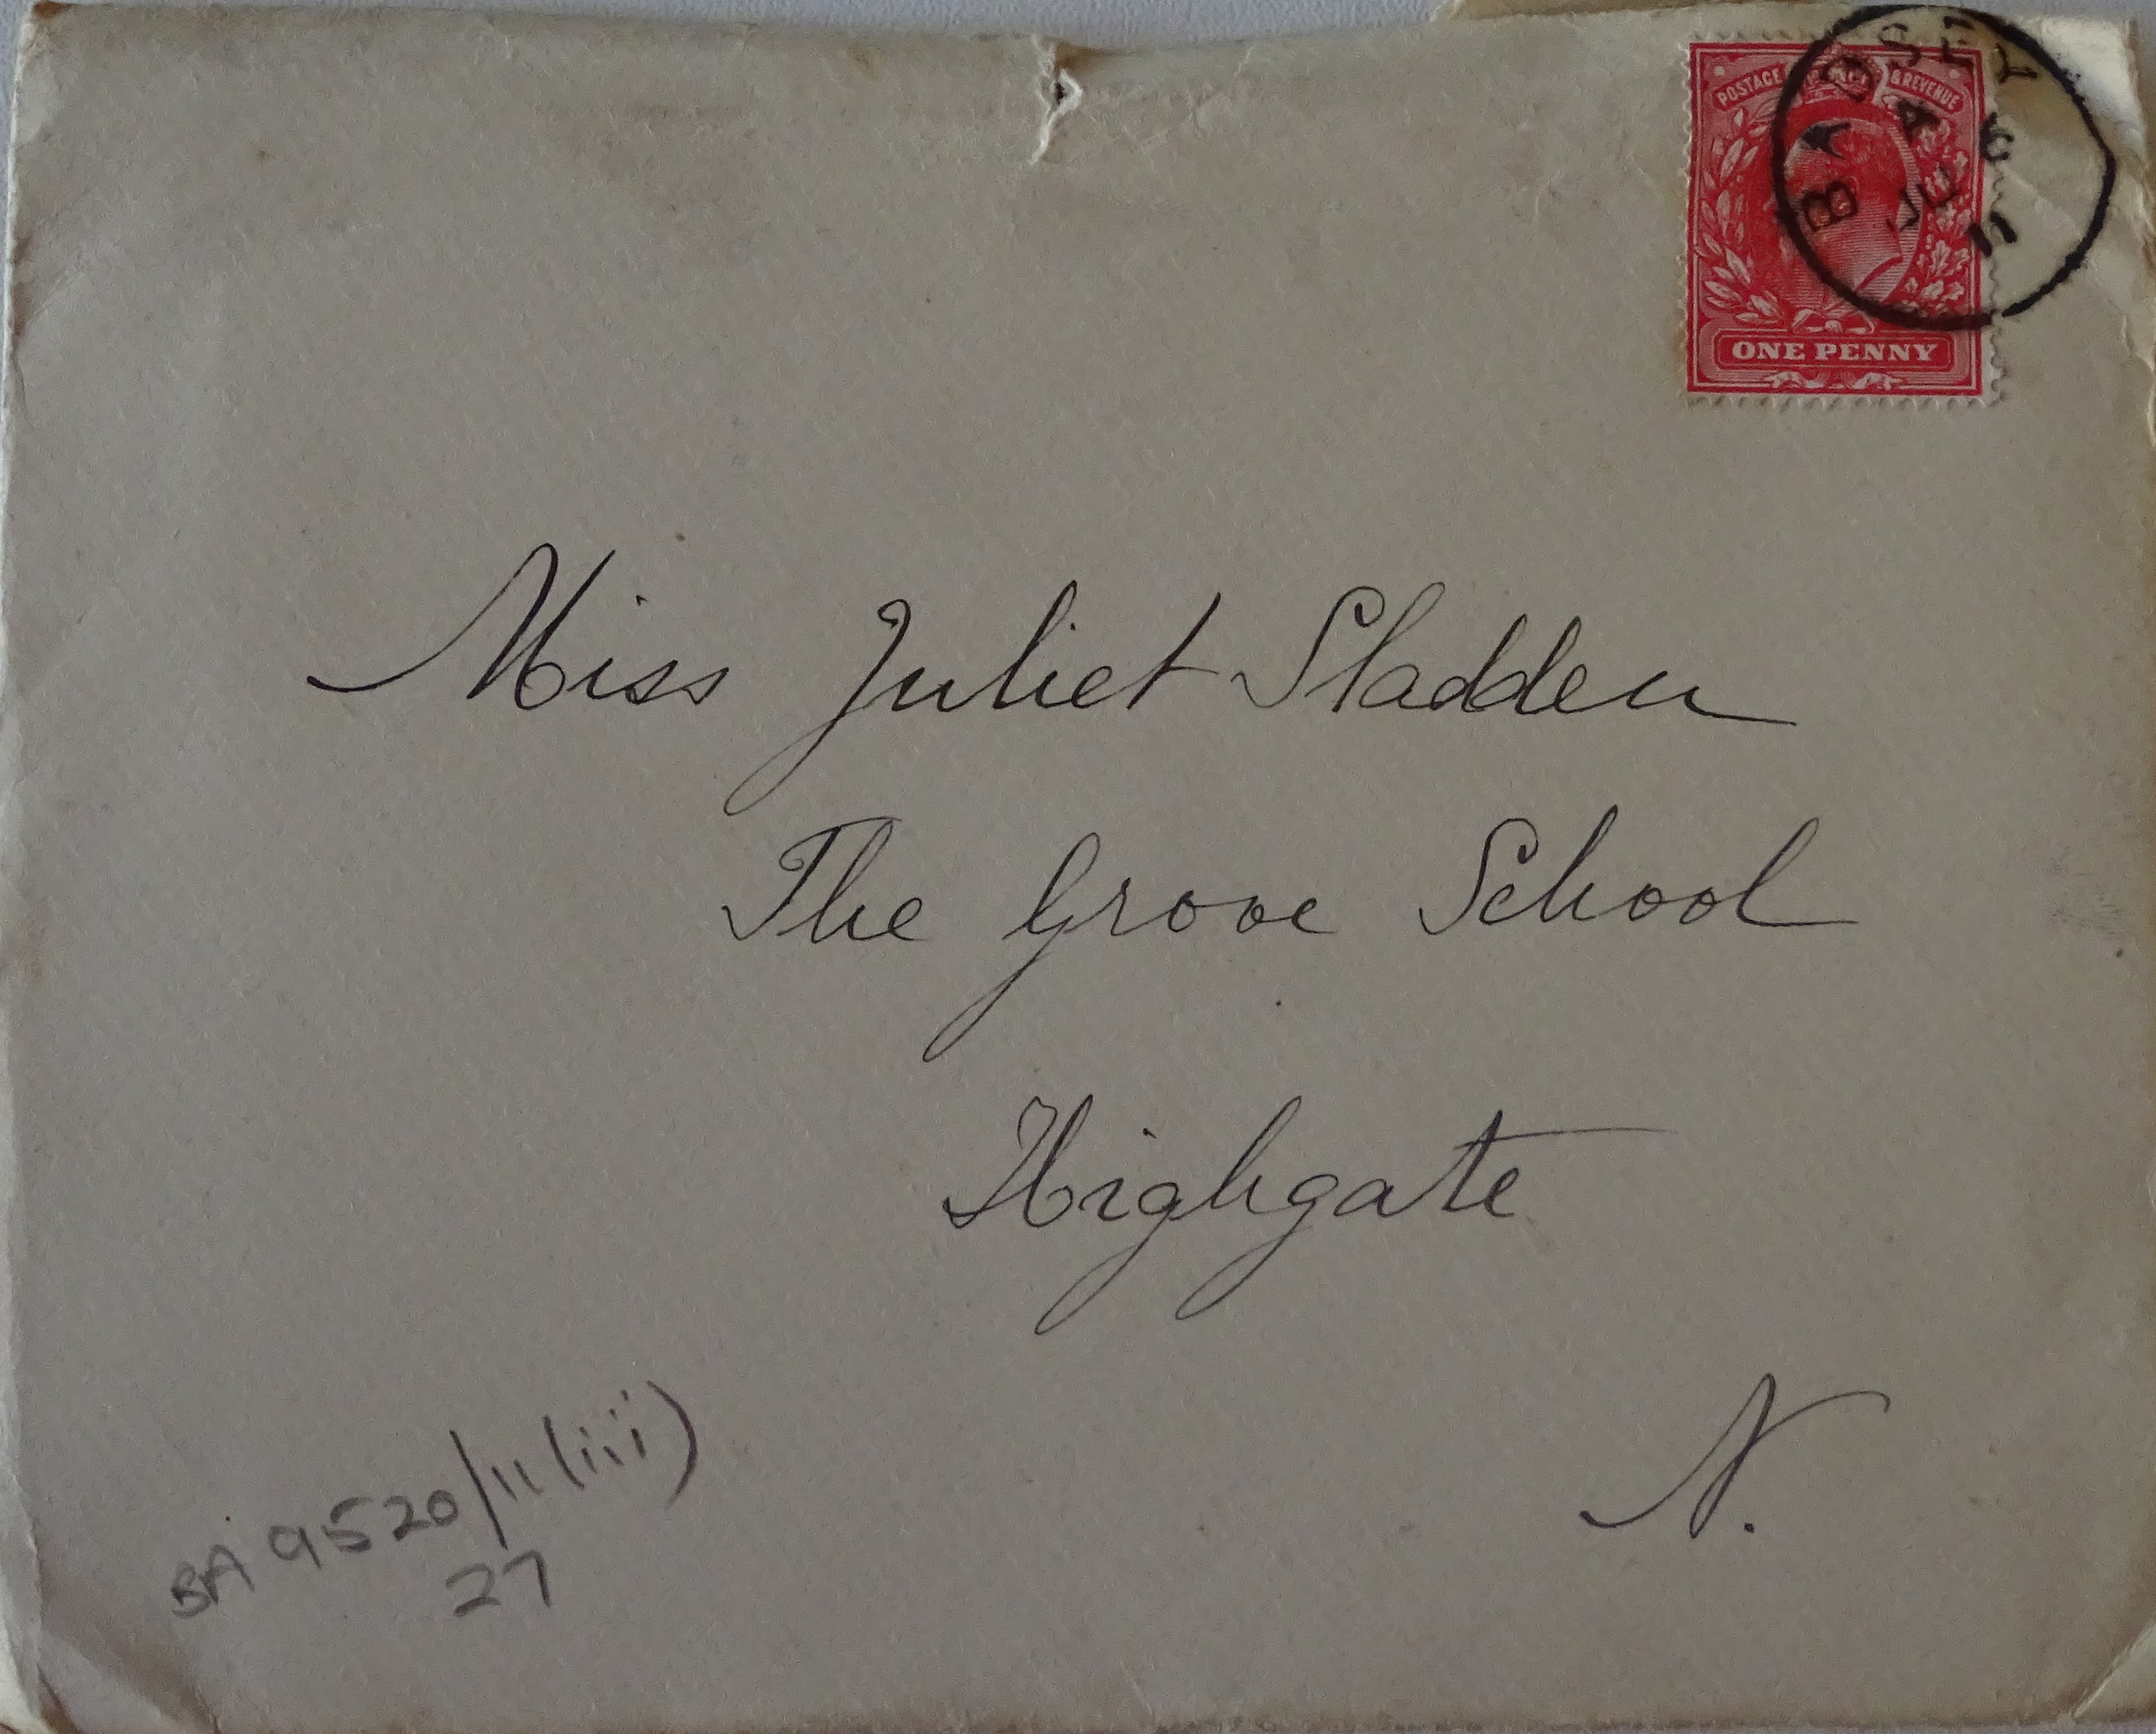 POSTAGE & REVENUE
BADSEY
A
6
11
ONE PENNY
Miss Juliet Sladden
The Grove School
Highgate
N.
BA 9520/11(iii)
27